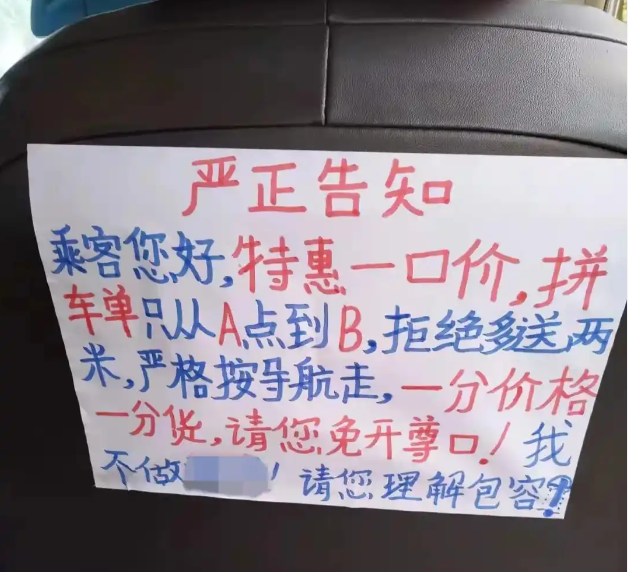 严正告知
乘客您好,特惠一口价,拼
车单只从A点到B,拒绝多送两
米,严格按导航走,一分价格
一分货,请您免开尊口!我
不做! 请您理解包容!